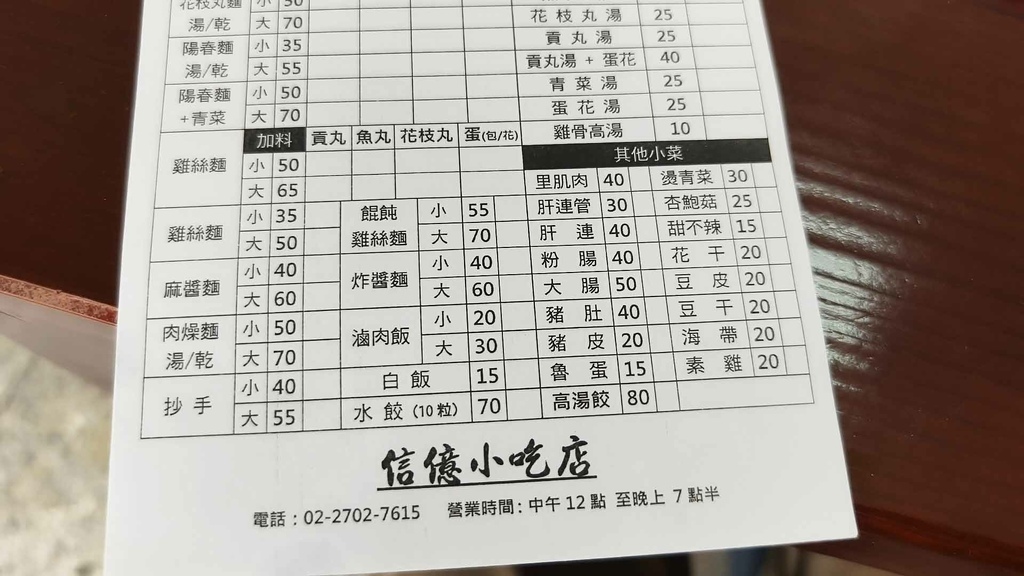 花枝丸麵 小 50
湯/乾 大 70
陽春麵 小 35
湯/乾 大 55
陽春麵 小 50
+青菜 大 70
加料 貢丸 魚丸 花枝丸 蛋(包/花)
雞絲麵 小 50
大 65
雞絲麵 小 35
大 50
麻醬麵 小 40
大 60
肉燥麵 小 50
湯/乾 大 70
抄手 小 40
大 55
餛飩 小 55
雞絲麵 大 70
炸醬麵 小 40
大 60
滷肉飯 小 20
大 30
白飯 15
水餃(10粒) 70
花枝丸湯 25
貢丸湯 25
貢丸湯 + 蛋花 40
青菜湯 25
蛋花湯 25
雞骨高湯 10
其他小菜
里肌肉 40 燙青菜 30
肝連管 30 杏鮑菇 25
肝連 40 甜不辣 15
粉腸 40 花干 20
大腸 50 豆皮 20
豬肚 40 豆干 20
豬皮 20 海帶 20
魯蛋 15 素雞 20
高湯餃 80
信億小吃店
電話：02-2702-7615 營業時間：中午 12 點 至晚上 7 點半